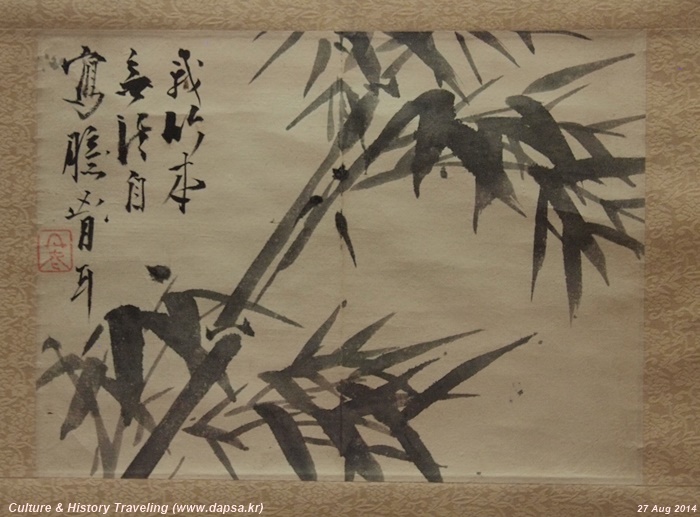 我竹本
無法自
寫臆胷耳
Culture & History Traveling (www.dapsa.kr)
27 Aug 2014